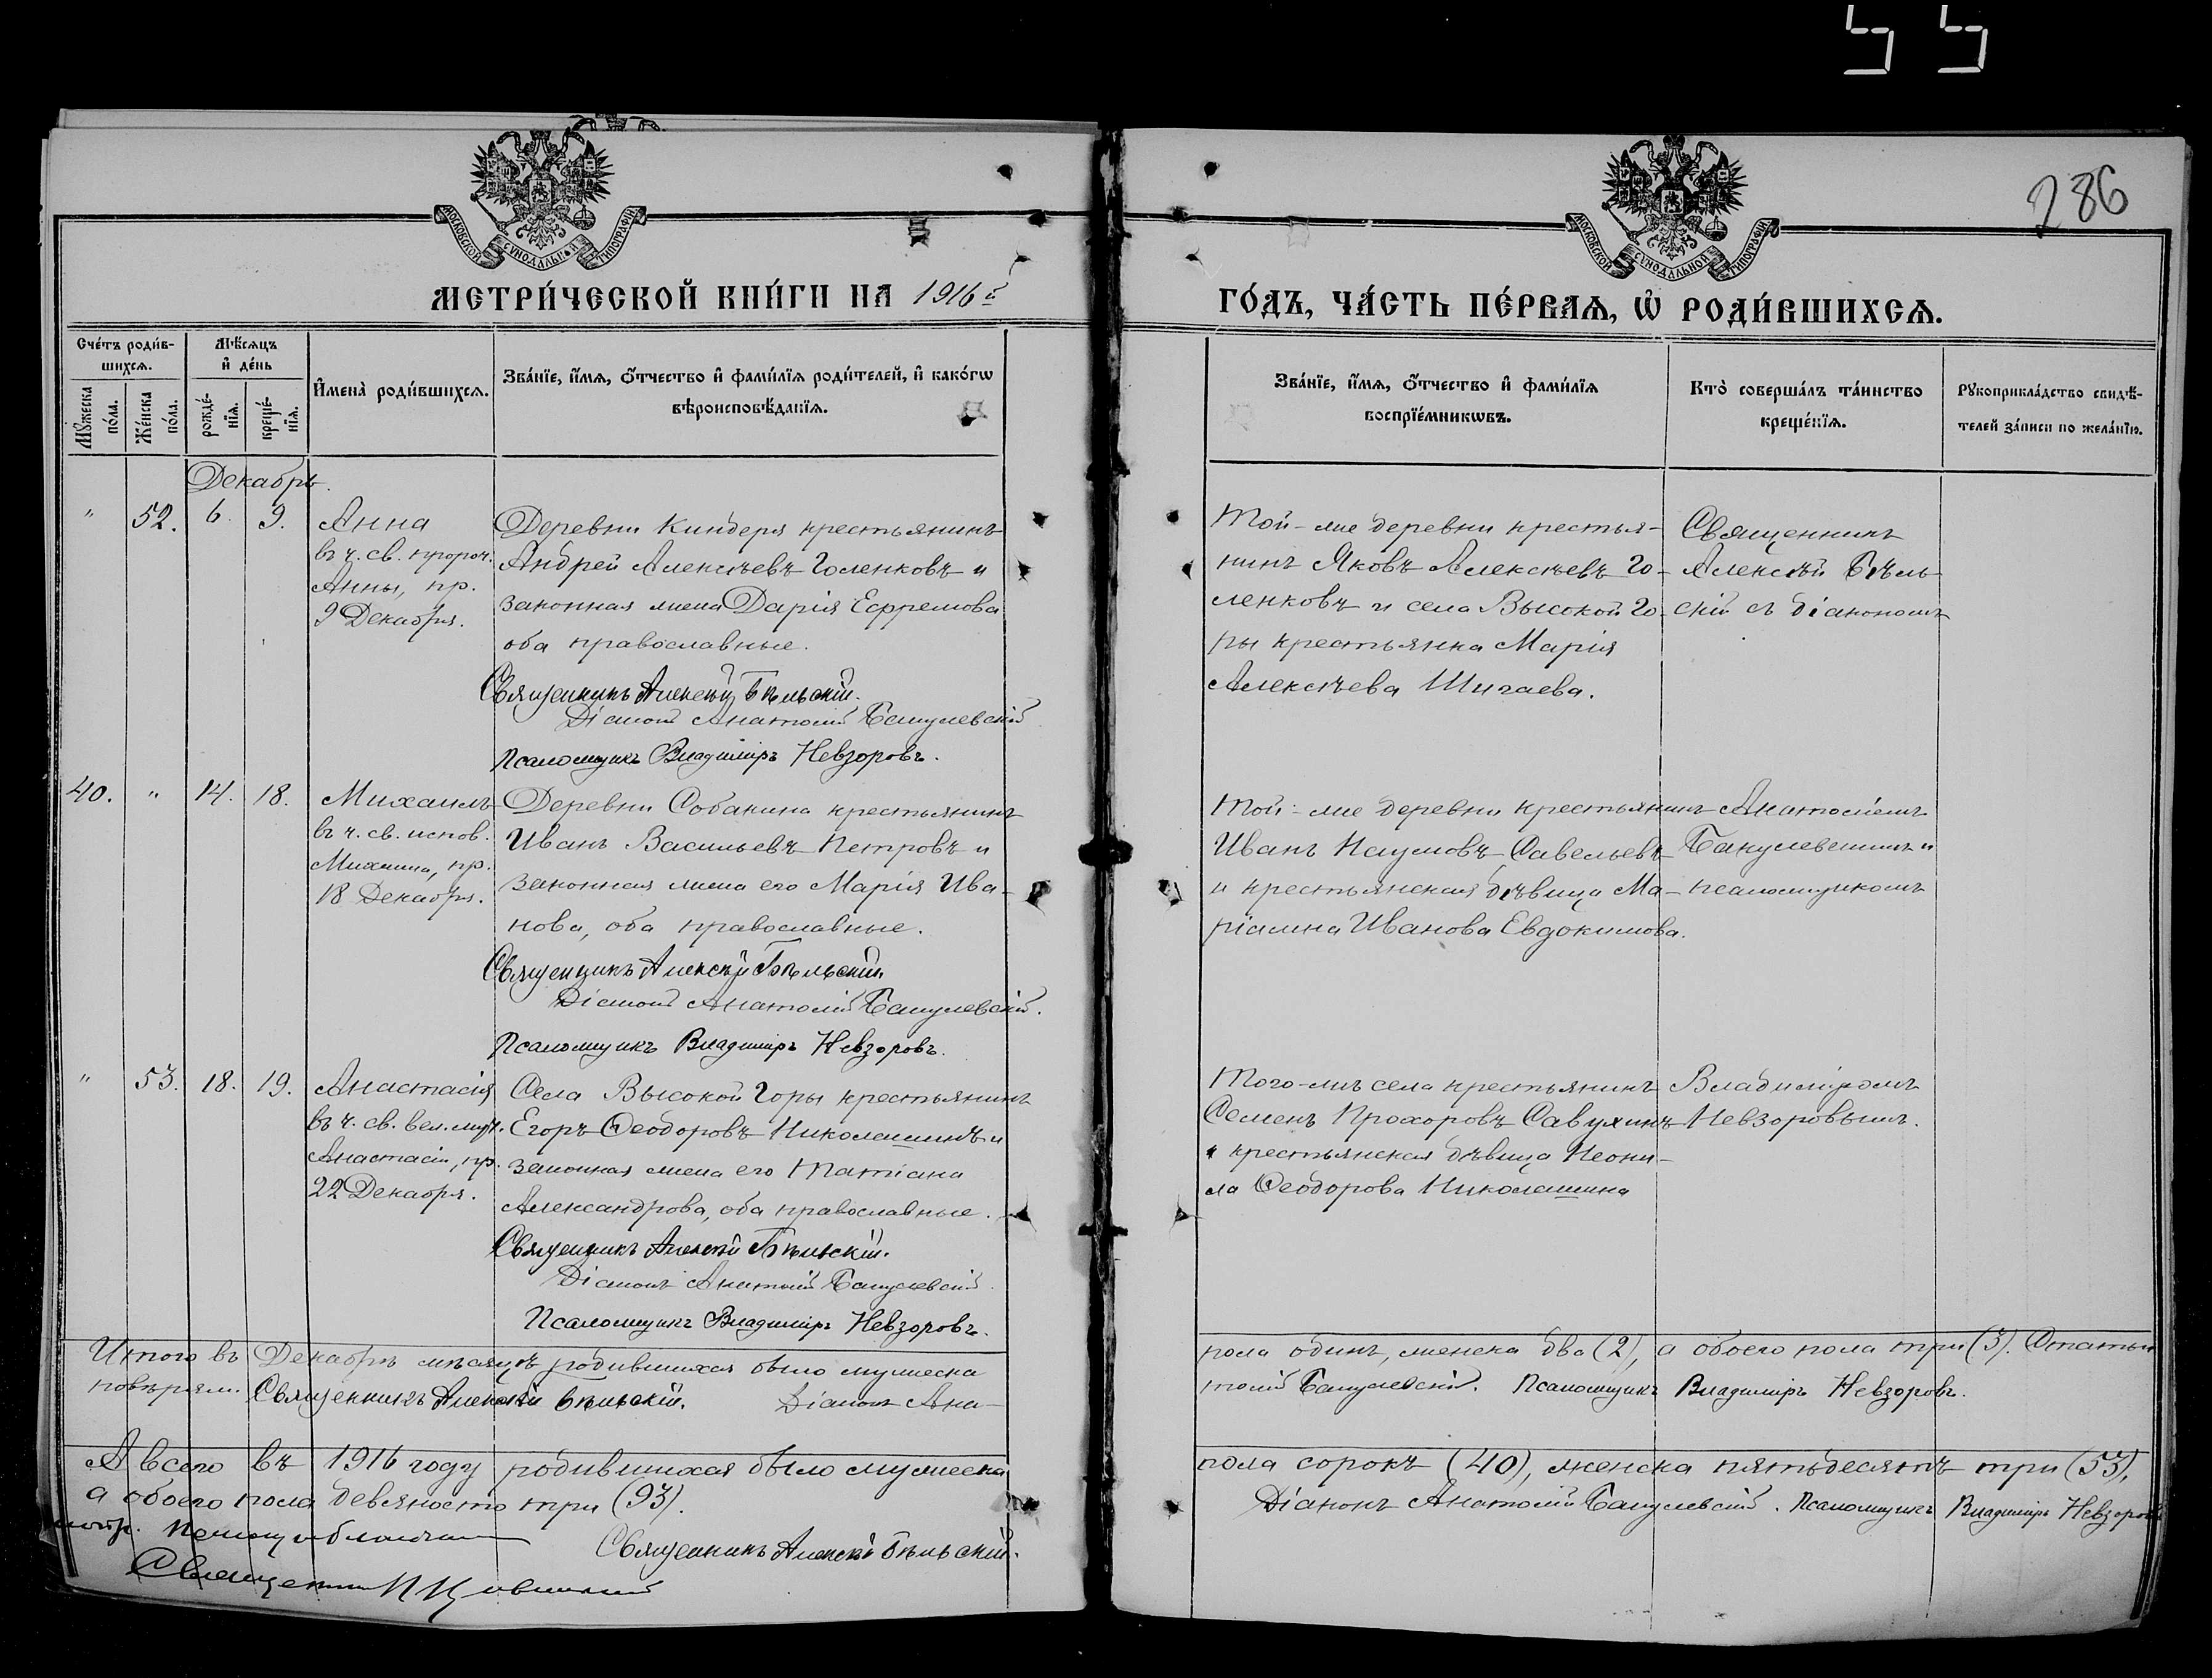 286
МОСКОВСКОЙ СѴНОДАЛЬНОЙ ТИПОГРАФІИ
МОСКОВСКОЙ СѴНОДАЛЬНОЙ ТИПОГРАФІИ
МЕТРИ́ЧЕСКОЙ КНИ́ГИ НА 1916й
ГО́ДЪ, ЧА́СТЬ ПЕ́РВАѦ, Ѡ҆ РОДИ́ВШИХСѦ.
Сче́тъ роди́в-
шихсѧ.
Мꙋ́жеска по́ла.
Же́нска по́ла.
Мѣ́сяцъ
и҆ де́нь
рожде́-
нїѧ.
креще́-
нїѧ.
И҆мена̀ роди́вшихсѧ.
Зва́нїе, и҆́мѧ, ѻ҆́тчество и҆ фами́лїѧ роди́телей, и҆ како́гѡ
вѣроисповѣ́данїѧ.
Зва́нїе, и҆́мѧ, ѻ҆́тчество и҆ фами́лїѧ
воспрїе́мникѡвъ.
Кто̀ соверша́лъ та́инство
креще́нїѧ.
Рꙋкоприкла́дство свидѣ́-
телей за́писи по жела́нїю.
Декабрь.
" 52. 6. 9.
Анна
въ ч. св. пророч.
Анны, пр.
9 Декабря.
Деревни Киндеря крестьянинъ
Андрей Алексѣевъ Голенковъ и
законная жена Дарія Ефремова
оба православные.
Священникъ Алексѣй Бѣльскій.
Діаконъ Анатолій Бакулевскій
Псаломщикъ Владиміръ Невзоровъ.
Той-же деревни крестья-
нинъ Яковъ Алексѣевъ Го-
ленковъ и села Высокой Го-
ры крестьянка Марія
Алексѣева Шигаева.
Священникъ
Алексѣй Бѣль-
скій съ діакономъ
40. " 14. 18.
Михаилъ
въ ч. св. испов.
Михаила, пр.
18 Декабря.
Деревни Собакина крестьянинъ
Иванъ Васильевъ Петровъ и
законная жена его Марія Ива-
нова, оба православные.
Священникъ Алексѣй Бѣльскій
Діаконъ Анатолій Бакулевскій.
Псаломщикъ Владиміръ Невзоровъ.
Той-же деревни крестьянинъ
Иванъ Наумовъ Савельевъ
и крестьянская дѣвица Ма-
ріамна Иванова Евдокимова.
Анатоліемъ
Бакулевскимъ и
псаломщикомъ
" 53. 18. 19.
Анастасія
въ ч. св. вел. муч.
Анастасіи, пр.
22 Декабря.
Села Высокой Горы крестьянинъ
Егоръ Ѳеодоровъ Николашинъ и
законная жена его Татіана
Александрова, оба православные.
Священникъ Алексѣй Бѣльскій.
Діаконъ Анатолій Бакулевскій.
Псаломщикъ Владиміръ Невзоровъ.
Того-жъ села крестьянинъ
Семенъ Прохоровъ Савухинъ
и крестьянская дѣвица Неони-
ла Ѳеодорова Николашина
Владиміромъ
Невзоровымъ.
Итого въ Декабрѣ мѣсяцѣ родившихся было мужеска
пола одинъ, женска два (2), а обоего пола три (3). Статьи
повѣряли. Священникъ Алексѣй Бѣльскій. Діаконъ Ана-
толій Бакулевскій. Псаломщикъ Владиміръ Невзоровъ.
А всего въ 1916 году родившихся было мужеска
пола сорокъ (40), женска пятьдесятъ три (53),
а обоего пола девяносто три (93).
Священникъ Алексѣй Бѣльскій.
Діаконъ Анатолій Бакулевскій. Псаломщикъ Владиміръ Невзоровъ
Священникъ